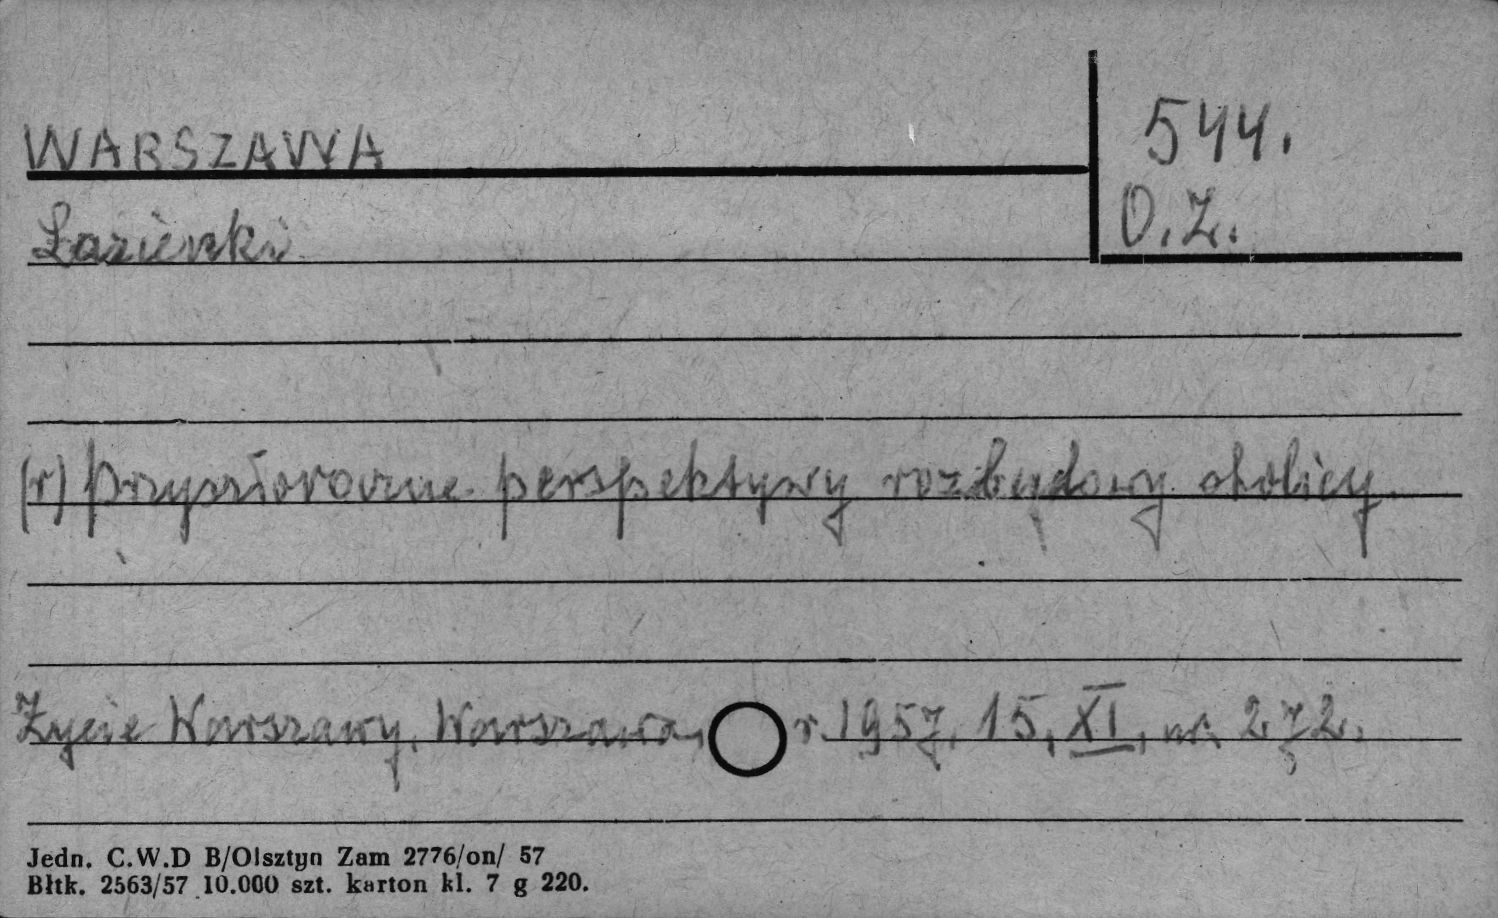 WARSZAWA
544.
Łazienki
O.Z.
(r) Przyszłoroczne perspektywy rozbudowy stolicy.
Życie Warszawy, Warszawa, r. 1957, 15, XI, nr. 272.
Jedn. C.W.D B/Olsztyn Zam 2776/on/ 57
Błtk. 2563/57 10.000 szt. karton kl. 7 g 220.